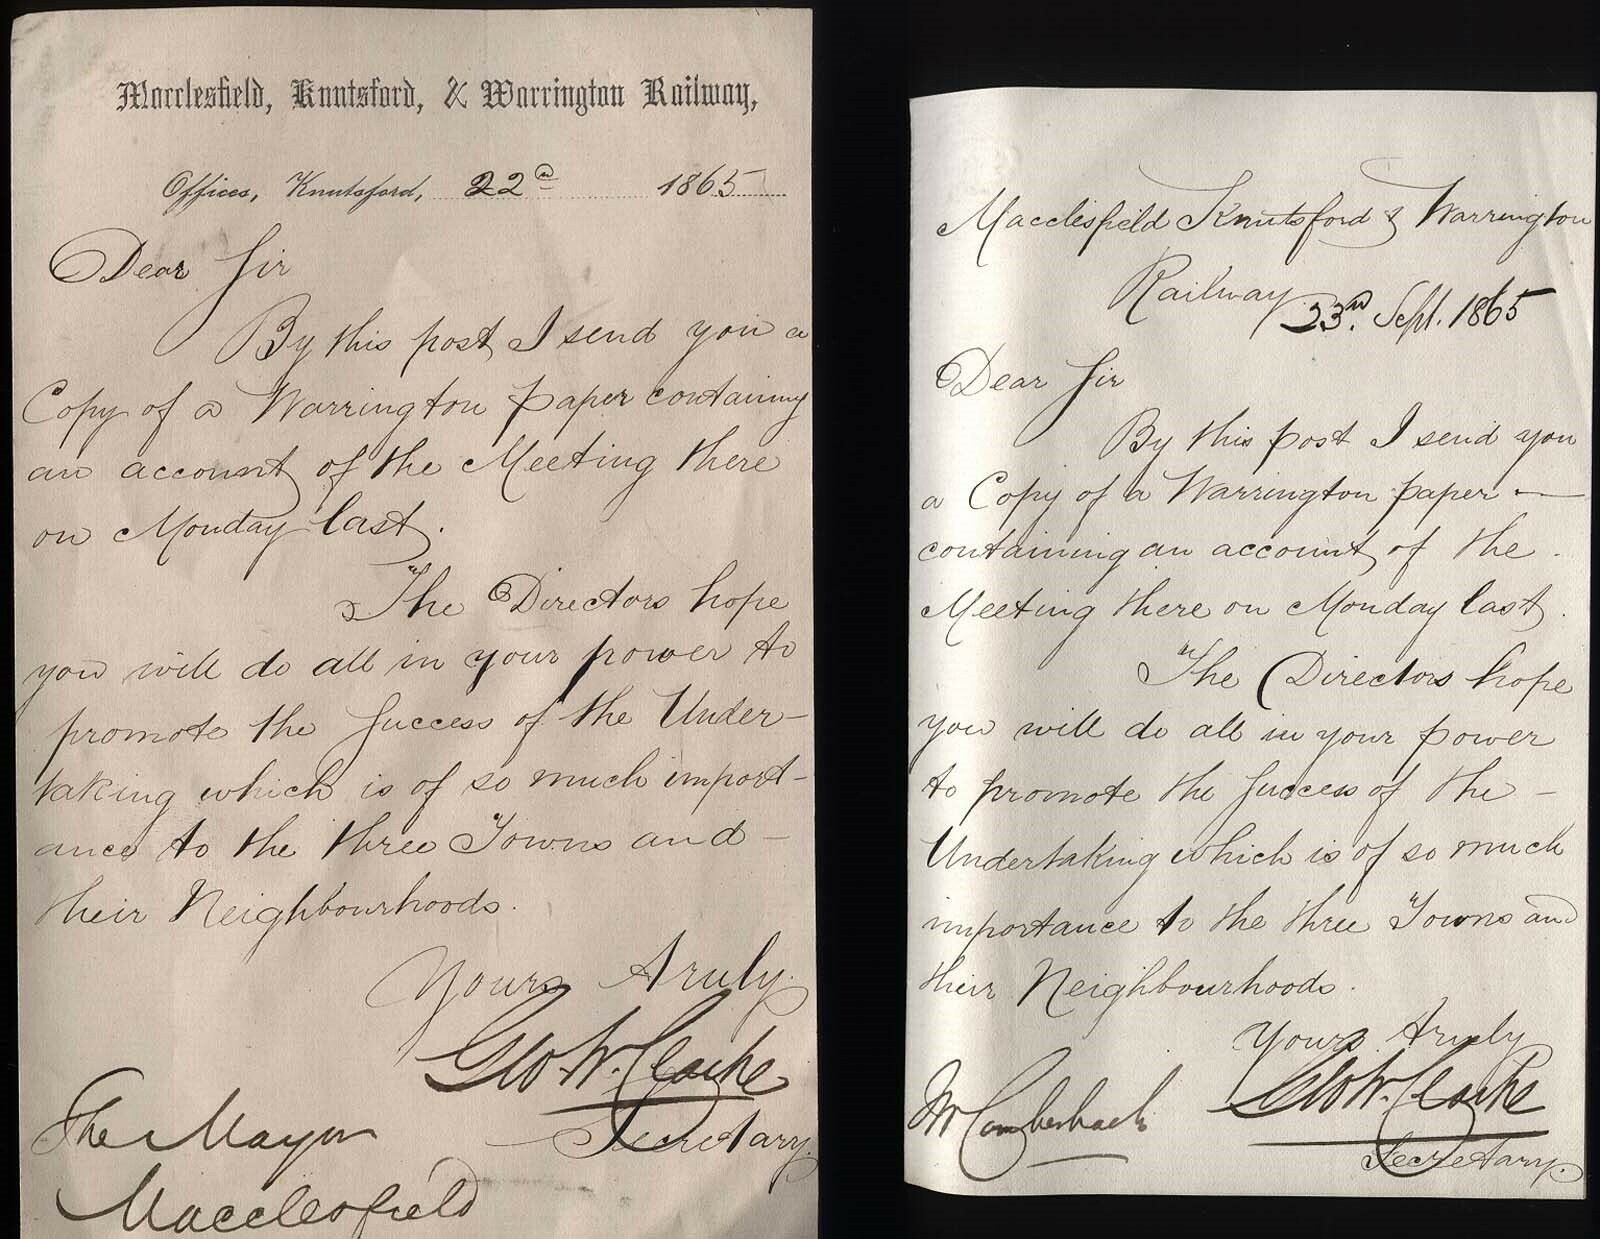 Macclesfield, Knutsford, & Warrington Railway,
Offices, Knutsford, 22n 1865
Dear Sir
By this post I send you a
Copy of a Warrington paper containing
an account of the Meeting there
on Monday last.
The Directors hope
you will do all in your power to
promote the Success of the Under-
taking which is of so much import-
ance to the three Towns and -
their Neighbourhoods.
Yours truly
Geo W. Clarke
Secretary.
The Mayor
Macclesfield
Macclesfield Knutsford & Warrington
Railway 23rd. Sept. 1865
Dear Sir
By this post I send you
a Copy of a Warrington paper -
containing an account of the
Meeting there on Monday last.
The Directors hope
you will do all in your power
to promote the Success of the -
Undertaking which is of so much
importance to the three Towns and
their Neighbourhoods.
Yours truly
Geo W. Clarke
Secretary.